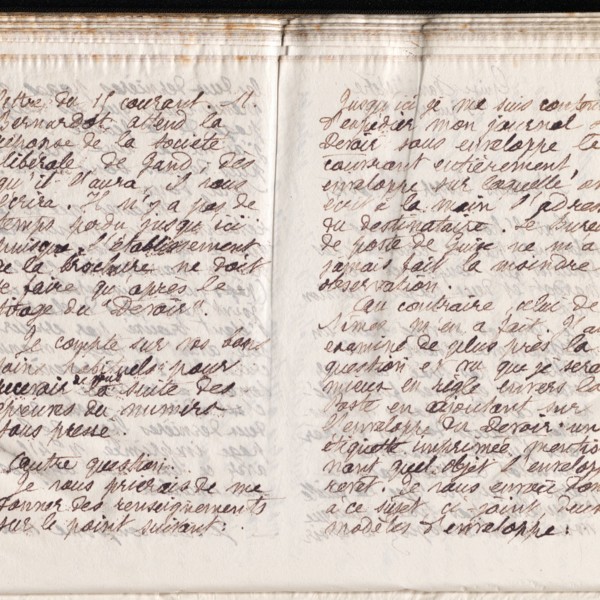 lettre du 15 courant. M.
Bernardot attend la
réponse de la société
libérale de Gand, dès
qu'il l'aura, il vous
écrira. Il n'y a pas de
temps perdu jusqu'ici
puisque l'établissement
de la brochure ne doit
se faire qu'après le
tirage du "Devoir".
Je compte sur vos bons
soins habituels pour
recevoir de vous la suite des
épreuves du numéro
sous presse.
Autre question.
Je vous prierais de me
donner des renseignements
sur le point suivant:
Jusqu'ici je me suis conten
d'expédier mon journal
Devoir sous enveloppe le
couvrant entièrement,
enveloppe sur laquelle, on
écrit à la main l'adres
du destinataire. Le bure
de poste de Guise ne m'a
jamais fait la moindre
observation.
Au contraire celui de
Nimes m'en a fait. J'ai
examiné de plus près la
question et vu que je sera
mieux en règle envers la
Poste en ajoutant sur
l'enveloppe du Devoir un
étiquette imprimée mentio
nant quel objet l'envelop
revêt. Je vous envoie don
à ce sujet ci joint deux
modèles d'enveloppe: